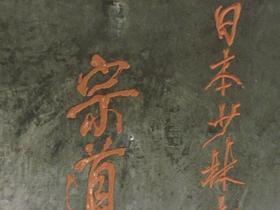 日本少林
宗道